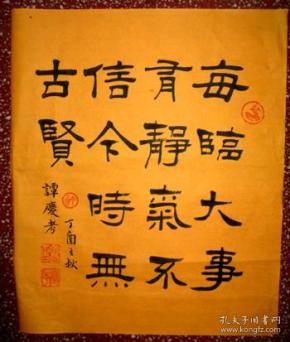 每臨大事
有靜氣不
信今時無
古賢
丁酉之秋
譚慶孝
孔夫子旧书网